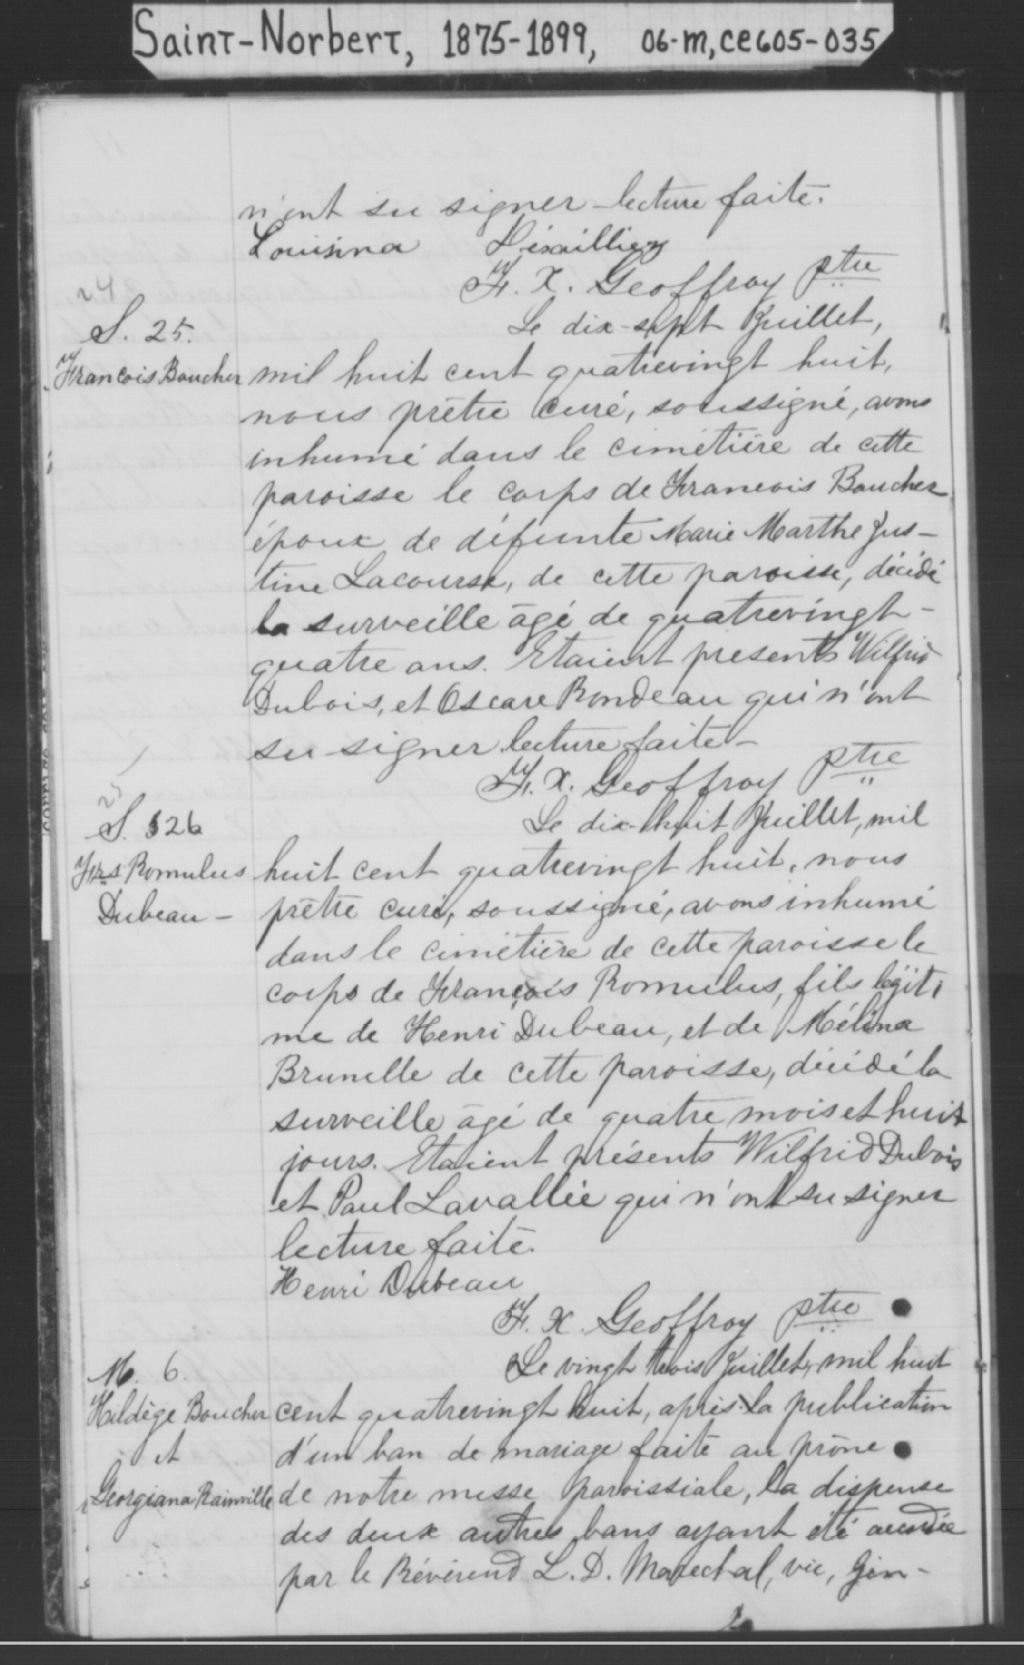 Saint-Norbert, 1875-1899, 06-m, ce605-035
n'ont su signer - lecture faite.
Louisina
F. X. Geoffroy ptre
24
S. 25.
Le dix-sept Juillet,
Francois Boucher
mil huit cent quatrevingt huit,
nous prêtre curé, soussigné, avons
inhumé dans le cimétière de cette
paroisse le corps de Francois Boucher
époux de défunte Marie Marthe Jus-
tine Lacourse, de cette paroisse, décédé
la surveille âgé de quatrevingt-
quatre ans. Etaient presents Wilfrid
Dubois, et Oscare Rondeau qui n'ont
su signer lecture faite -
F. X. Geoffroy ptre
25
S. 26
Le dix-huit Juillet, mil
Frs Romulus
Dubeau -
huit cent quatrevingt huit, nous
prêtre curé, soussigné, avons inhumé
dans le cimétière de cette paroisse le
corps de François Romulus, fils légiti
me de Henri Dubeau, et de Mélina
Brunelle de cette paroisse, décédé la
surveille âgé de quatre mois et huit
jours. Etaient présents Wilfrid Dubois
et Paul Lavallée qui n'ont su signer
lecture faite.
Henri Dubeau
F. X. Geoffroy ptre
M. 6.
Le vingt trois Juillet, mil huit
Hildège Boucher
et
Georgiana Rainville
cent quatrevingt huit, après la publication
d'un ban de mariage faite au prône
de notre messe paroissiale, la dispense
des deux autres bans ayant été accordée
par le Révérend L. D. Marechal, vic, Gén-